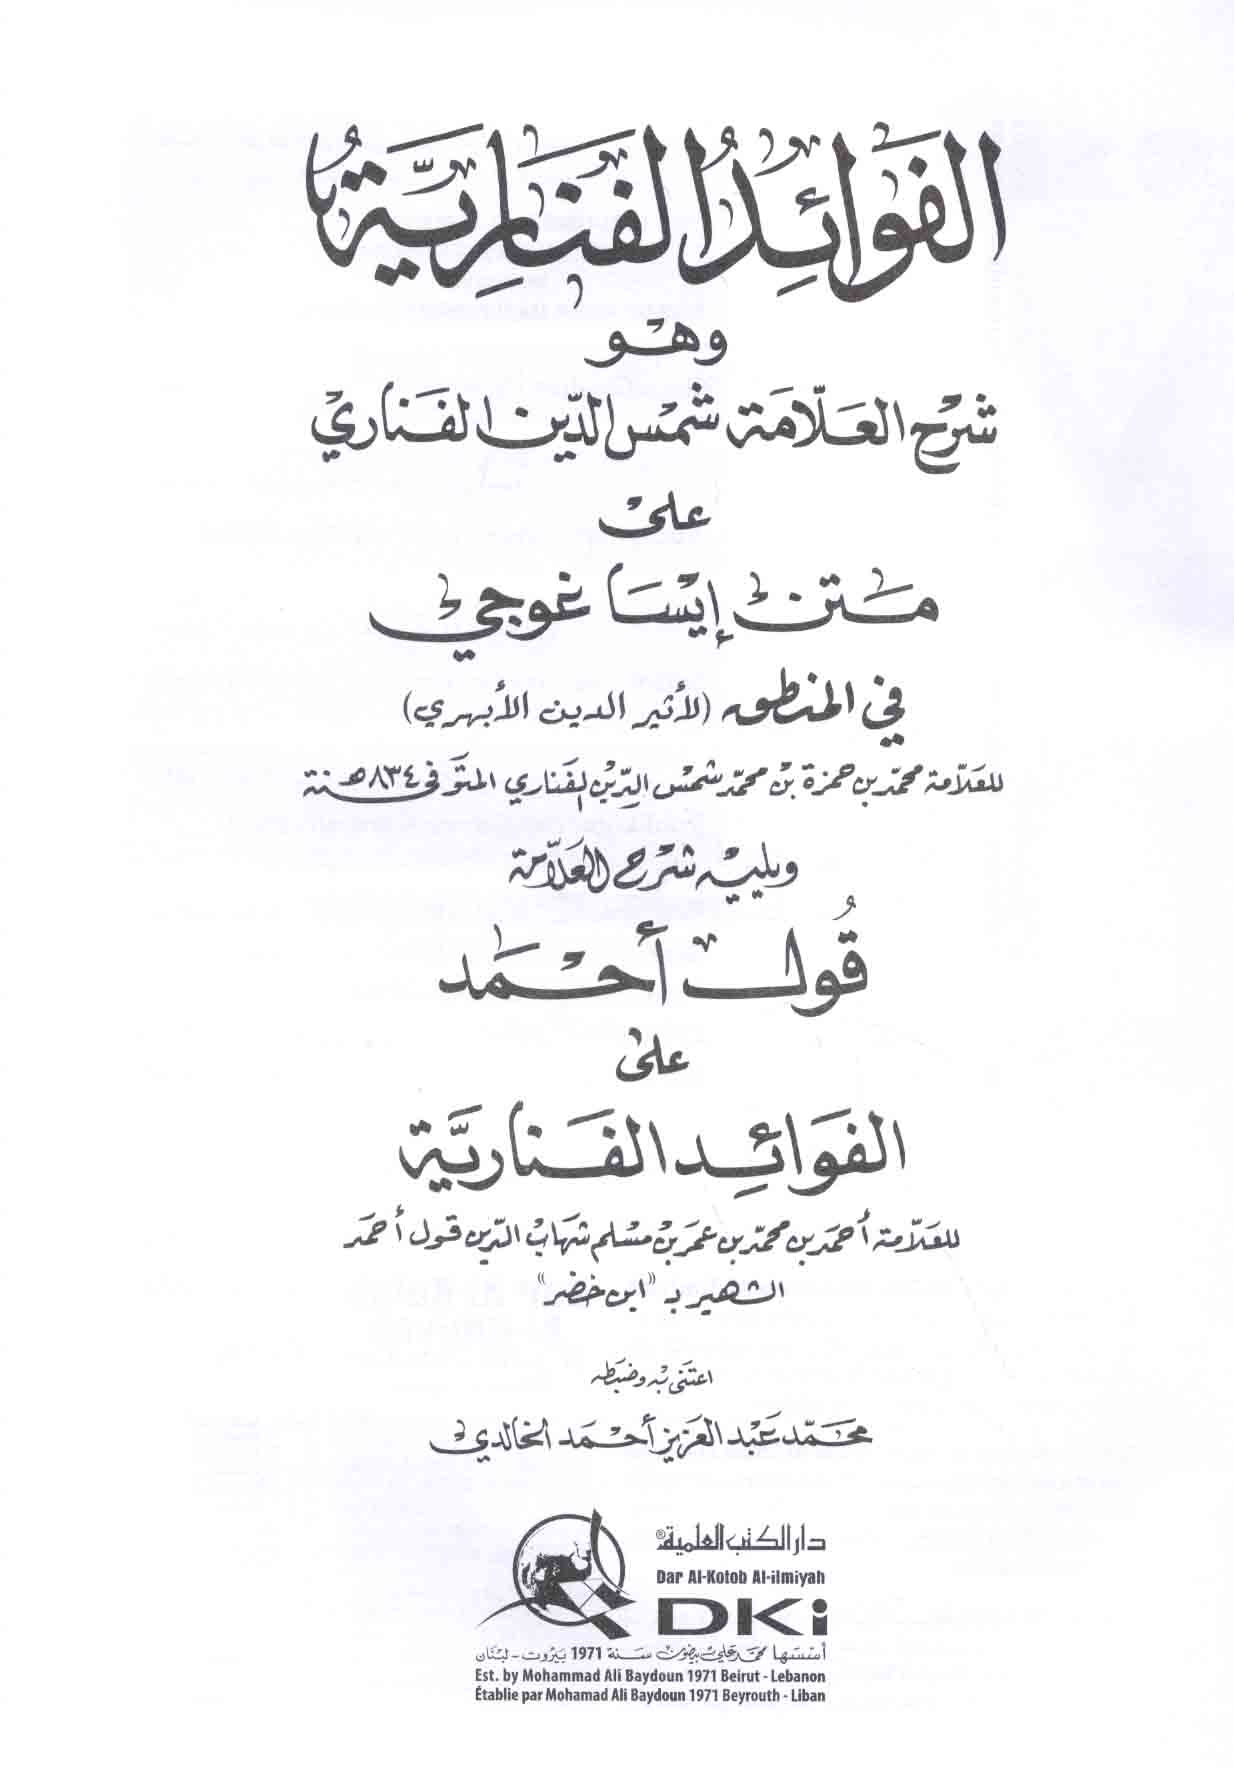 الفَوَائِدُ الفَنَارِيَّةُ
وهو
شرح العلّامة شمس الدّين الفناري
على
متن إيساغوجي
في المنطق (لأثير الدين الأبهري)
للعلّامة محمّد بن حمزة بن محمّد شمس الدّين الفناري المتوفى سنة ٨٣٤هـ
ويليه شرح العلّامة
قُول أحمد
على
الفَوَائِد الفَنَاريَّة
للعلّامة أحمد بن محمّد بن عمر بن مسلم شهاب الدّين قول أحمد
الشهير بـ "ابن خضر"
اعتنى به وضبطه
محمّد عبد العزيز أحمد الخالدي
دار الكتب العلمية®
Dar Al-Kotob Al-ilmiyah
DKi
أسسها محمد علي بيضون سنة 1971 بيروت - لبنان
Est. by Mohammad Ali Baydoun 1971 Beirut - Lebanon
Établie par Mohamad Ali Baydoun 1971 Beyrouth - Liban